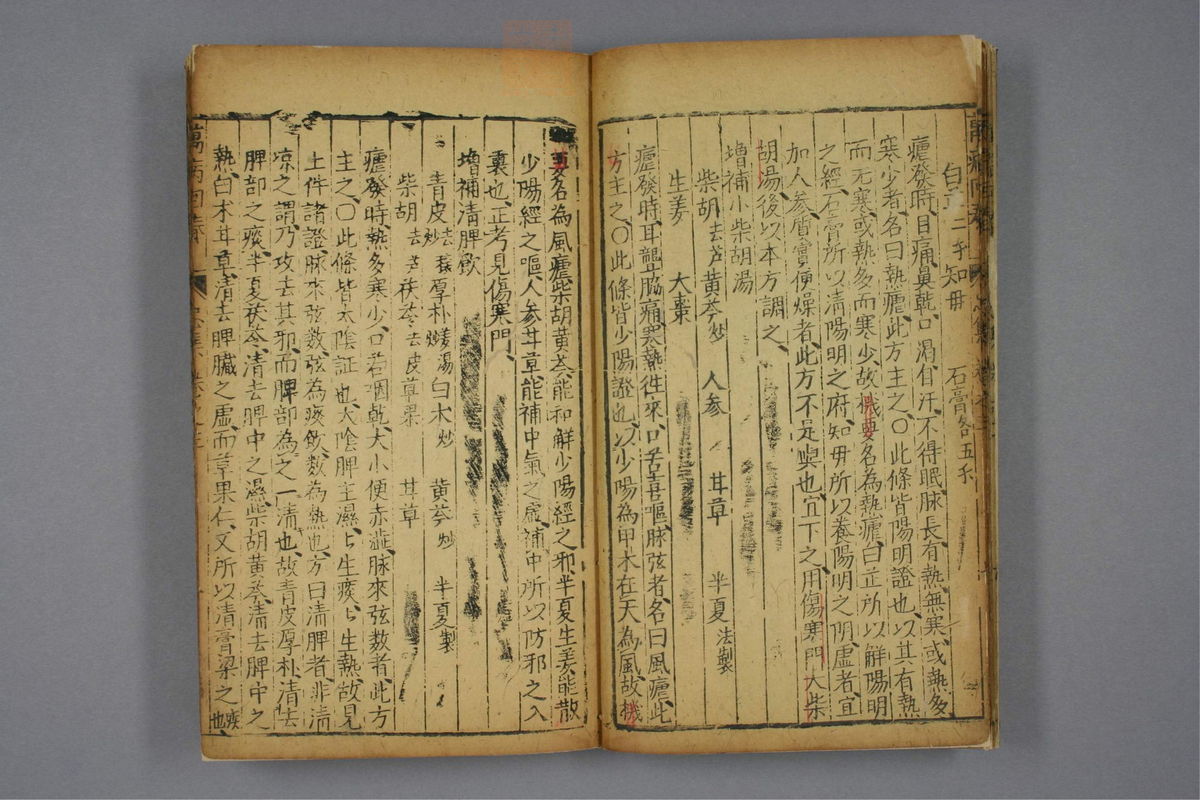 白芷二錢 知母 石膏各五錢
瘧發時目痛鼻乾口渴自汗不得眠脉長有熱無寒或熱多
寒少者名曰熱瘧此方主之〇此條皆陽明證也以其有熱
而无寒或熱多而寒少故機要名為熱瘧白芷所以解陽明
之經石膏所以清陽明之府知毋所以養陽明之阴虚者宜
加人參質實便燥者此方不足與也宜下之用傷寒門大柴
胡湯後以本方調之
增補小柴胡湯
柴胡去芦 黃芩炒 人參 甘草 半夏法製
生姜 大棗
瘧發時耳聾脇痛寒熱徃來口苦喜嘔脉弦者名曰風瘧此
方主之〇此條皆少陽證也以少陽為甲木在天為風故機
要名為風瘧柴胡黃芩能和解少陽經之邪半夏生姜能散
少陽經之嘔人參甘草能補中氣之虛補中所以防邪之入
裏也正考見傷寒門
增補清脾飲
青皮去穰炒 厚朴 白术炒 黃芩炒 半夏製
柴胡去芦 茯苓去皮 草果 甘草
瘧發時熱多寒少口苦咽乾大小便赤澁脉來弦数者此方
主之〇此條皆太陰証也太陰脾主濕ヒ生痰ヒ生熱故見
上件諸證脉來弦数弦為痰飲数為熱也方曰清脾者非清
凉之謂乃攻去其邪而脾部為之一清也故青皮厚朴清去
脾部之痰半夏茯苓清去脾中之濕柴胡黃芩清去脾中之
熱白术甘草清去脾臟之虛而草果仁又所以清膏梁之痰也